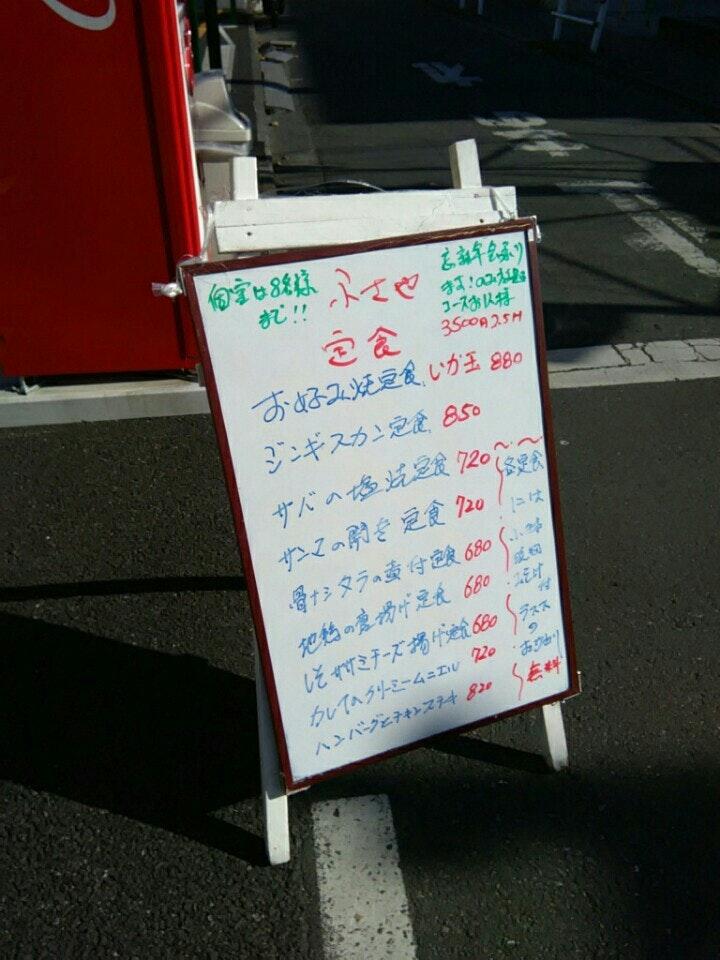 個室は8名様
まで!!
ふさや
定食
コースお1人様
3500円 2.5H
お好み焼定食 いか玉 880
ジンギスカン定食 850
サバの塩焼定食 720
サンマの開き定食 720
骨ナシタラの煮付定食 680
地鶏の唐揚げ定食 680
しそササミチーズ揚げ定食 680
カレイのクリームムニエル 720
ハンバーグとチキンステキ 820
各定食
には
みそ汁
付
ライス
の
おかわり
無料